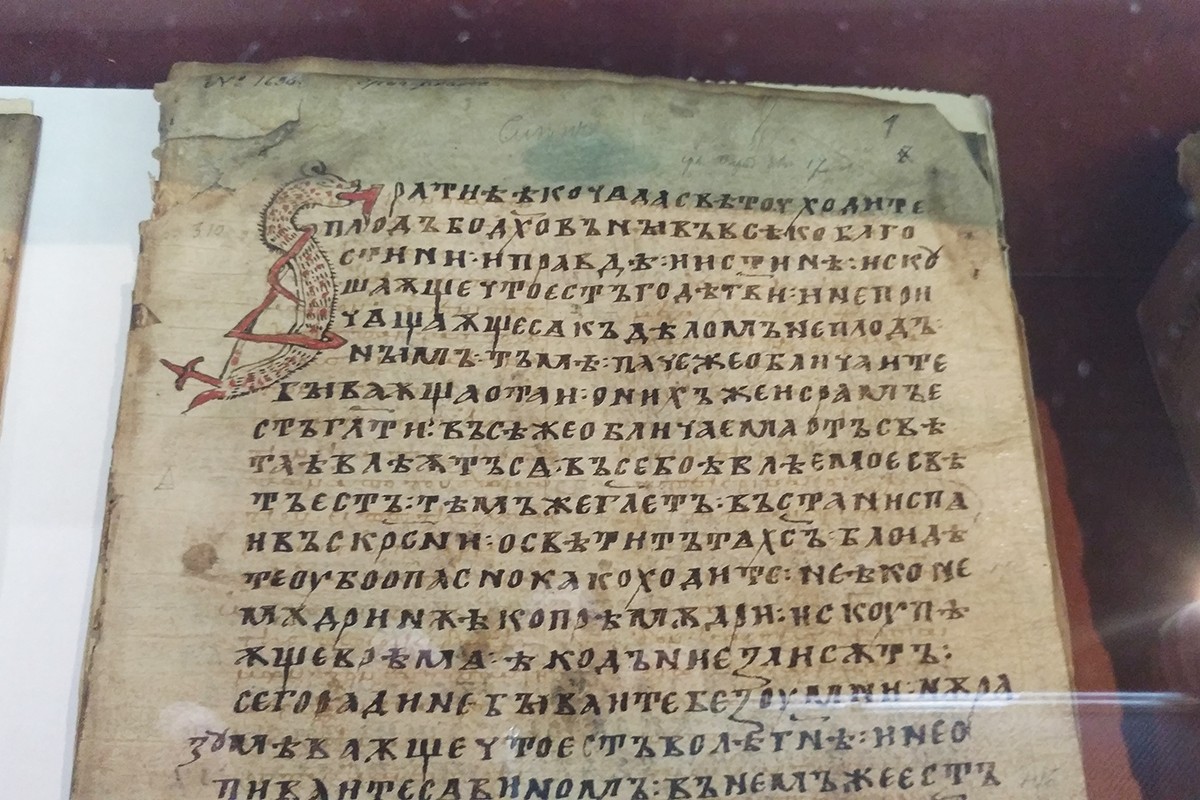 № 1694
1
8
310
братиѣ ѣко чада свѣтоу ходите
плодъ бо дх҃овъны въвсѣко благо
стини · и правдѣ · и истинѣ : иско
шаѫще что естъ годѣ гви · и непри
чащаѫщеса къдѣломъ неплодъ
нымъ · тъмѣ · пачеже обличаите
бываѫщаотаи · онихъ женсрамъе
стъглт҃и · въсѣжеобличаемаа отъсвѣ
таѣвлѣѫтъса · въсебоѣвлѣемоесвѣ
тъестъ · тѣмъжегл҃етъ · въстаниспа
ивъскр҃сни · осветитътах҃съ · блюдѣ
теоубоопаснокакоходите : неѣконе
мѫдринѫѣкопрѣмѫдри : искоупѣ
ѫщеврѣма · ѣкодъниезлисѫтъ :
сегорадинебываитебезоумни · нѫра
зꙋмѣваѫщечтоестъволѣгнѣ · инео
пиваитесавиномъ : вънемъжеестъ